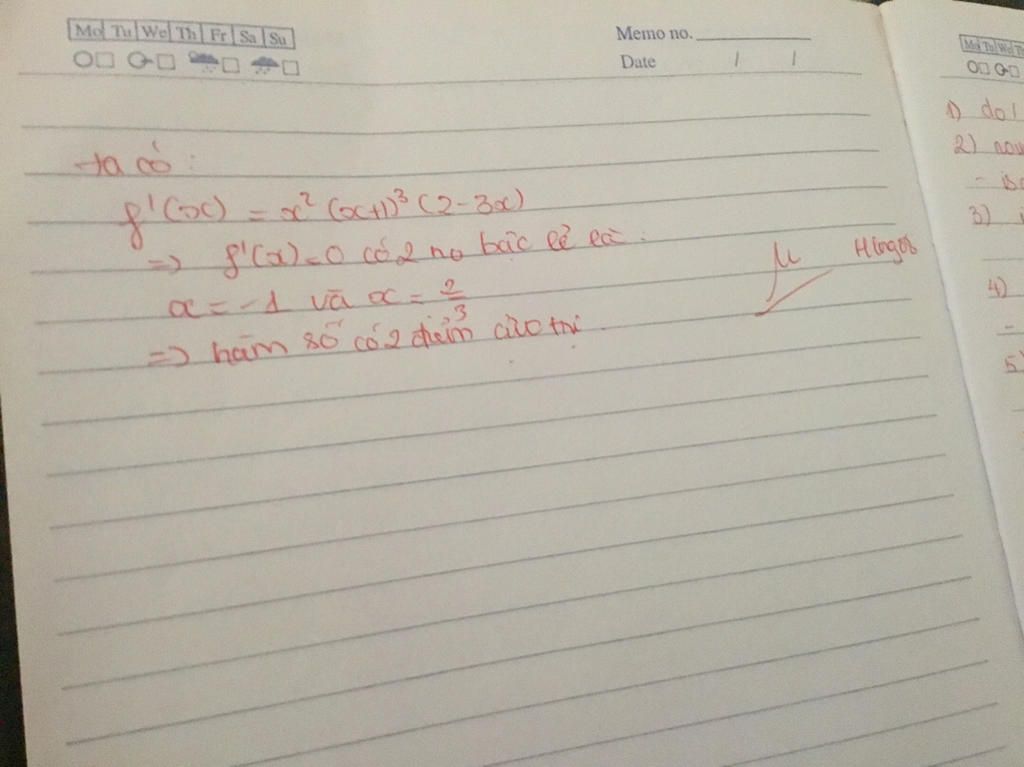 Mo Tu We Th Fr Sa Su
Memo no.
Date / /
ta có :
f'(x) = x² (x+1)³ (2-3x)
=> f'(x)=0 có 2 no bậc lẻ là :
x = -1 và x = 2/3
=> hàm số có 2 điểm cực trị.
Mo Tu We Th
1) do
2)
3)
4)
-
5)